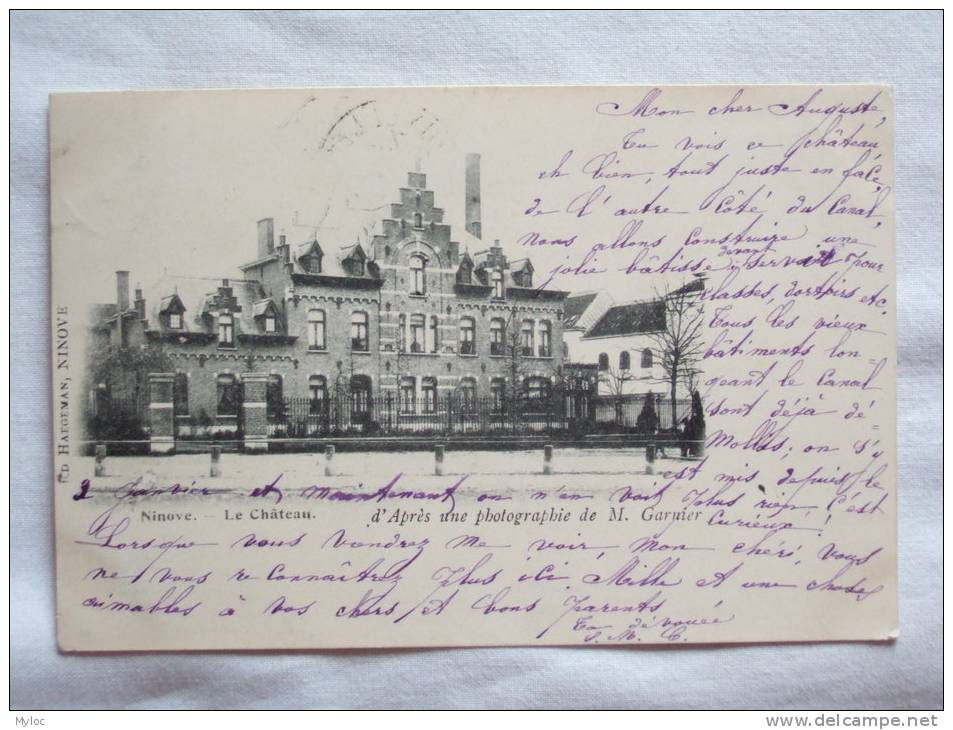 Mon cher Auguste,
Tu vois ce château
eh bien, tout juste en face,
de l'autre côté du Canal,
nous allons construire une
jolie bâtisse devant servir pour
classes, dortoirs etc.
Tous les vieux
bâtiments lon=
geant le Canal
sont déjà dé
mollis; on s'y
est mis depuis le
2 Janvier et maintenant on n'en voit plus rien, C'est
Curieux!
Lorsque vous viendrez me voir, mon chéri, vous
ne vous re connaîtrez plus ici. Mille et une choses
aimables à vos chers et bons parents
Ta dévouée
S. M. C.
Ninove. - Le Château. d'Après une photographie de M. Garnier
ED HAEGEMAN, NINOVE
Myloc
www.delcampe.net